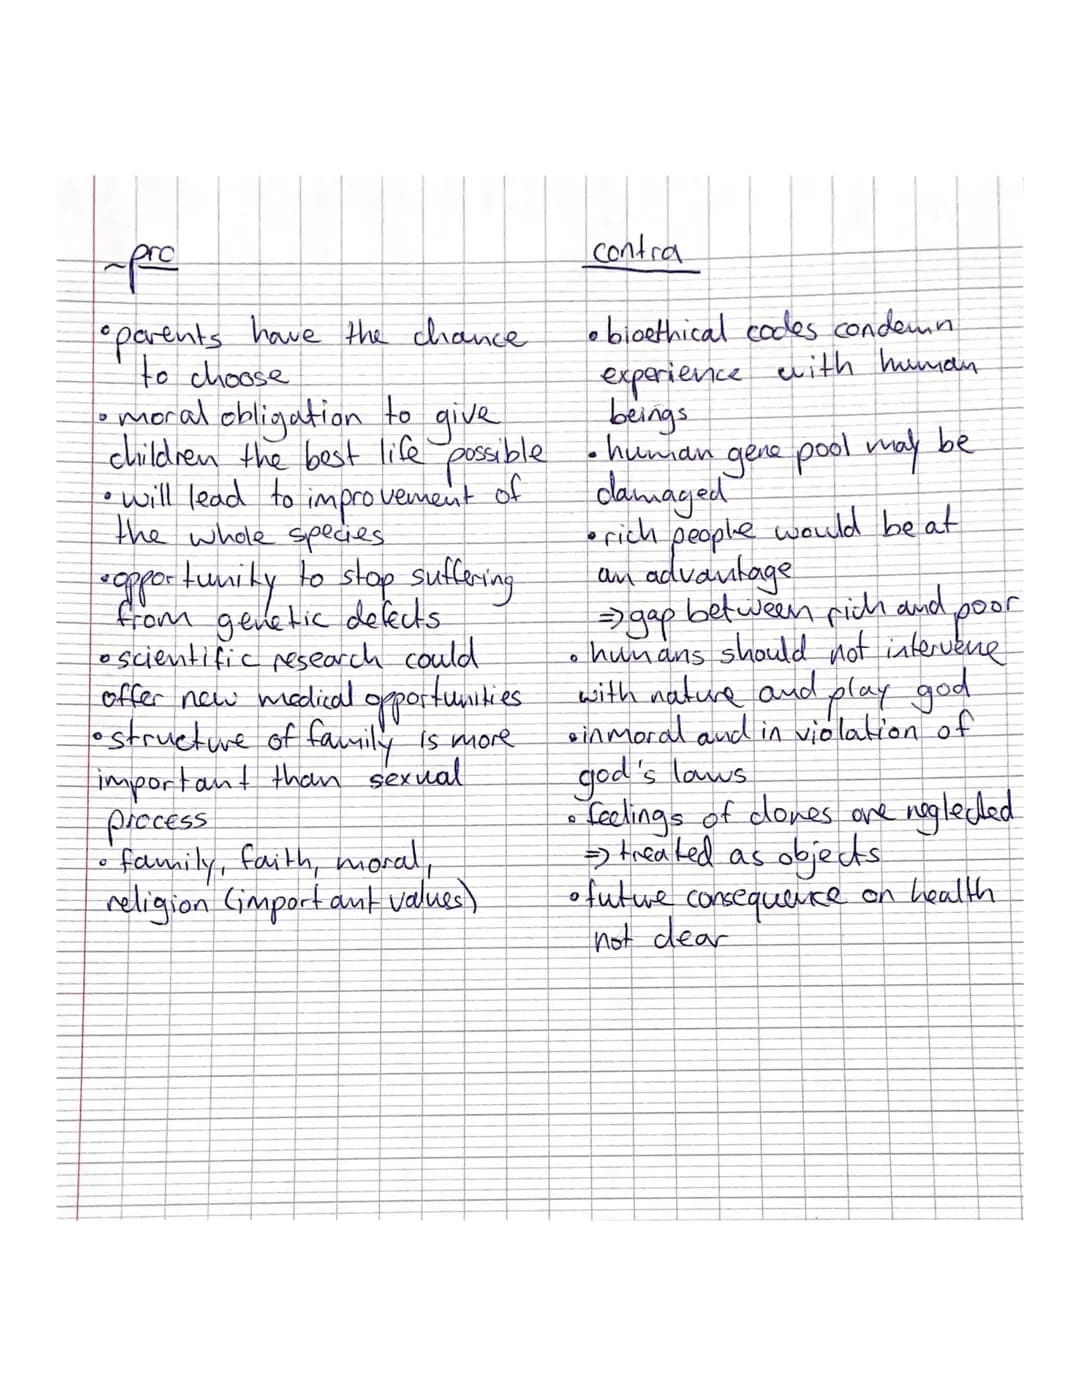 ~pro
• parents have the chance
to choose
• moral obligation to give
children the best life possible
• will lead to improvement of
the whole species
• opportunity to stop suffering
from genetic defects
• scientific research could
offer new medical opportunities
• structure of family is more
important than sexual
process
• family, faith, moral,
religion (important values)
contra
• bioethical codes condemn
experience with human
beings
• human gene pool may be
damaged
• rich people would be at
an advantage
=> gap between rich and poor
• humans should not intervene
with nature and play god
• inmoral and in violation of
god's laws
• feelings of clones are neglected
=> treated as objects
• future consequence on health
not clear